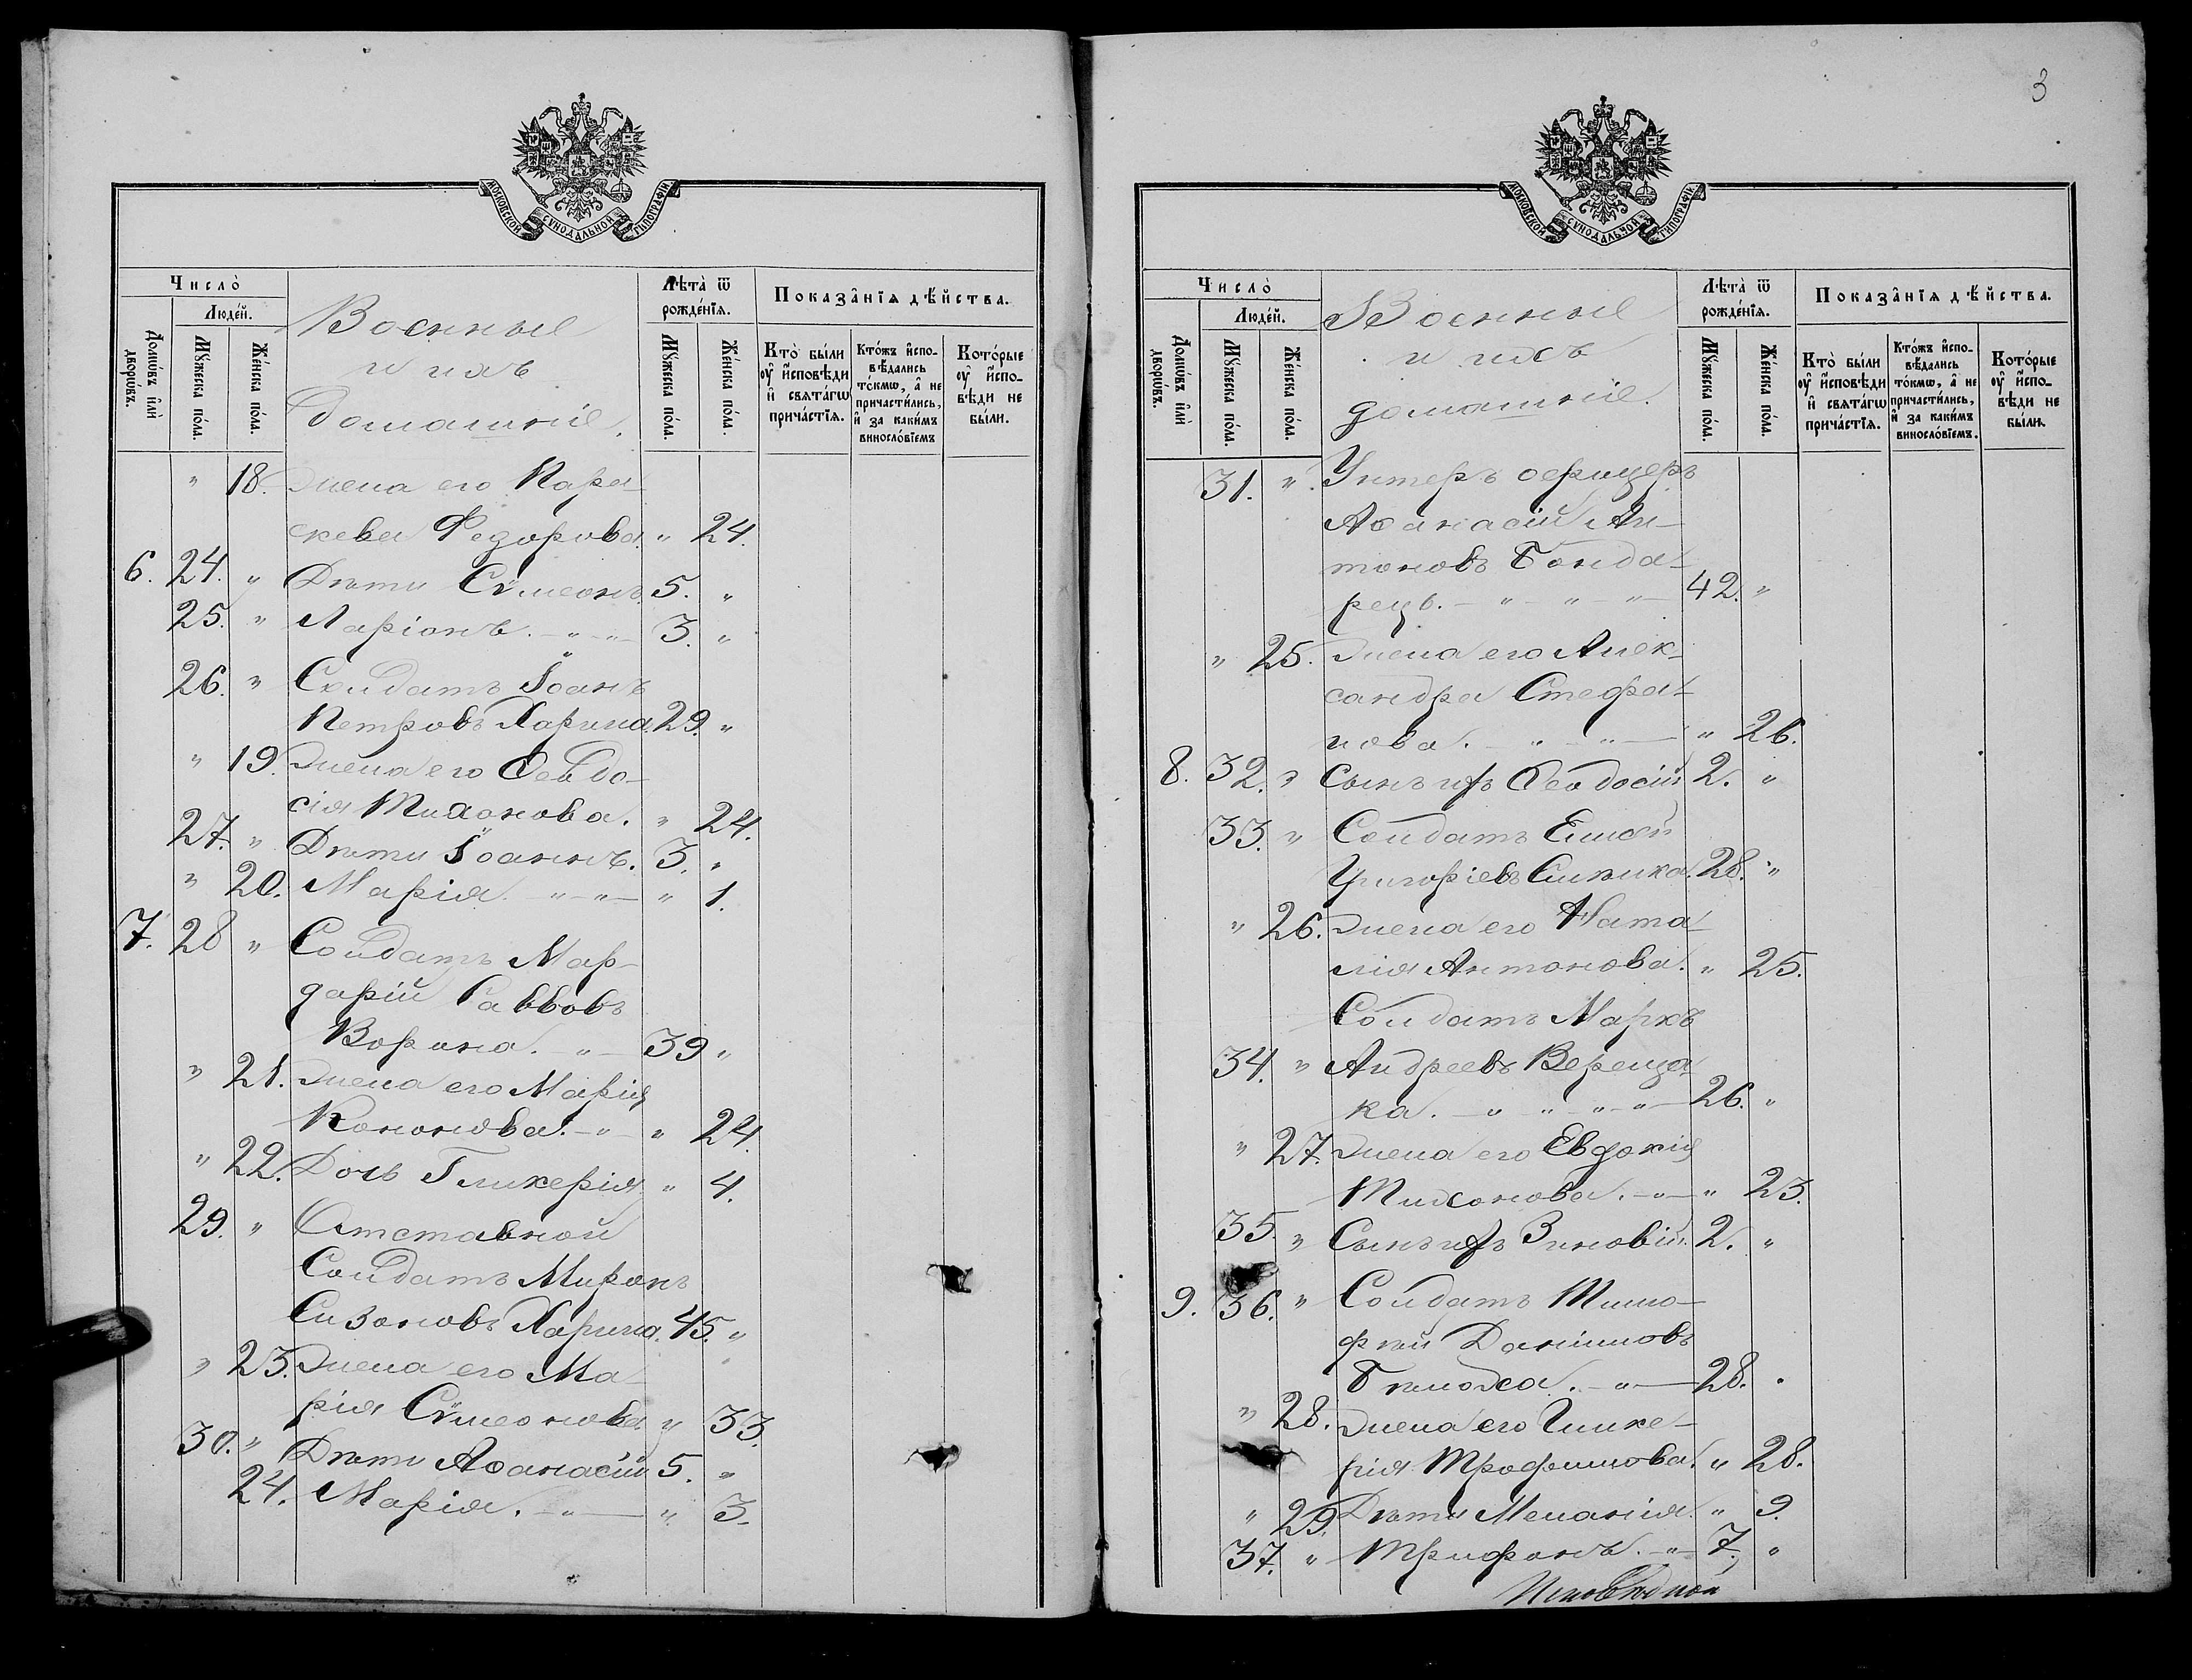 3
МОСКОВСКОЙ СУНОДАЛЬНОЙ ТИПОГРАФІИ
Число̀
Людей.
Домѡвъ и҆лѝ дворѡвъ.
Мꙋ́жеска по́ла.
Же́нска по́ла.
Военные
и ихъ
домашніе.
Лѣта̀ ѿ рожде́нїѧ.
Мꙋ́жеска по́ла.
Же́нска по́ла.
Показа̂нїѧ дѣ́йства.
Кто̀ бы́ли ᲂу҆ и҆сповѣди и҆ свѧта́гѡ прича́стїѧ.
Кто́жъ и҆сповѣ́дались то́кмѡ, а҆ не причасти́лись, и҆ за каки́мъ виносло́вїемъ
Кото́рые ᲂу҆ и҆сповѣди не бы́ли.
" 18. Жена его Пара-
скева Федорова. " 24.
6. 24. " Дѣти Сѵмеонъ. 5. "
25. " Ларіонъ. - " - " - 3. "
26. " Солдатъ Іоанъ
Петровъ Харина. 29. "
" 19. Жена его Ѳеѵдо-
сія Тихонова. " 24.
27. " Дѣти Іоаннъ. 3. "
" 20. Марія. - " - " - " 1.
7. 28 " Солдатъ Мар-
дарій Саввовъ
Ворона. - " - 39 "
" 21. Жена его Марія
Кононова. - " - " 24.
" 22. Дочь Гликерія. " 4.
29. " Отставной
Солдатъ Миронъ
Сизоновъ Харина. 45. "
" 23. Жена его Ма-
рія Сѵмеонова. " 33.
30. " Дѣти Аѳанасій 5. "
24. Марія. - " - " 3.
МОСКОВСКОЙ СУНОДАЛЬНОЙ ТИПОГРАФІИ
Число̀
Людей.
Домѡвъ и҆лѝ дворѡвъ.
Мꙋ́жеска по́ла.
Же́нска по́ла.
Военные
и ихъ
домашніе.
Лѣта̀ ѿ рожде́нїѧ.
Мꙋ́жеска по́ла.
Же́нска по́ла.
Показа̂нїѧ дѣ́йства.
Кто̀ бы́ли ᲂу҆ и҆сповѣди и҆ свѧта́гѡ прича́стїѧ.
Кто́жъ и҆сповѣ́дались то́кмѡ, а҆ не причасти́лись, и҆ за каки́мъ виносло́вїемъ.
Кото́рые ᲂу҆ и҆сповѣди не бы́ли.
31. " Унтеръ офицеръ
Аѳанасій Ан-
тоновъ Бонда-
рецъ. - " - " - " - 42. "
" 25. Жена его Алек-
сандра Стефа-
нова. - " - " - " 26.
8. 32. " Сынъ ихъ Ѳеодосій 2. "
33. " Солдатъ
Григоріевъ 28. "
" 26. Жена его Ната-
лія Антонова. " 25.
Солдатъ Маркъ
34. " Андреевъ Вереща-
ка. - " - " - " - " - 26. "
" 27. Жена его Евдокія
Тихонова. - " - " 23.
35. " Сынъ ихъ Зиновій. 2. "
9. 36. " Солдатъ Тимо-
фей Даниловъ
28. "
" 28. Жена его Глике-
рія Трофимова. " 28.
" 29. Дѣти Меланія. " 9.
37. " Трифонъ. - " - 7. "
Исповѣдной